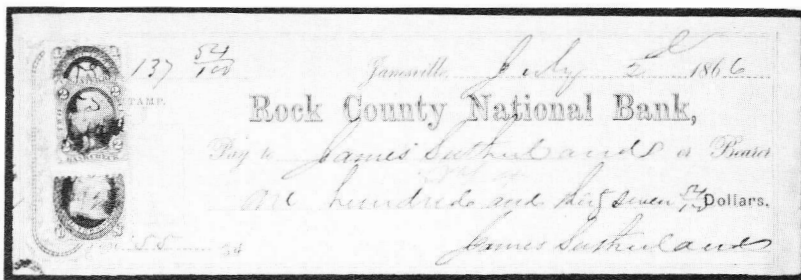 137 54/100 Janesville July 2d 1866
STAMP.
Rock County National Bank,
Pay to James Sutherland or Bearer
One hundred and thirty seven 54/100 Dollars.
James Sutherland